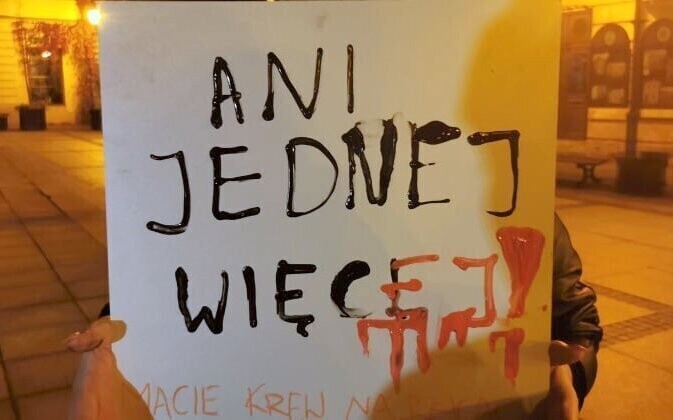 ANI
JEDNEJ
WIĘCEJ!
MACIE KREW NA